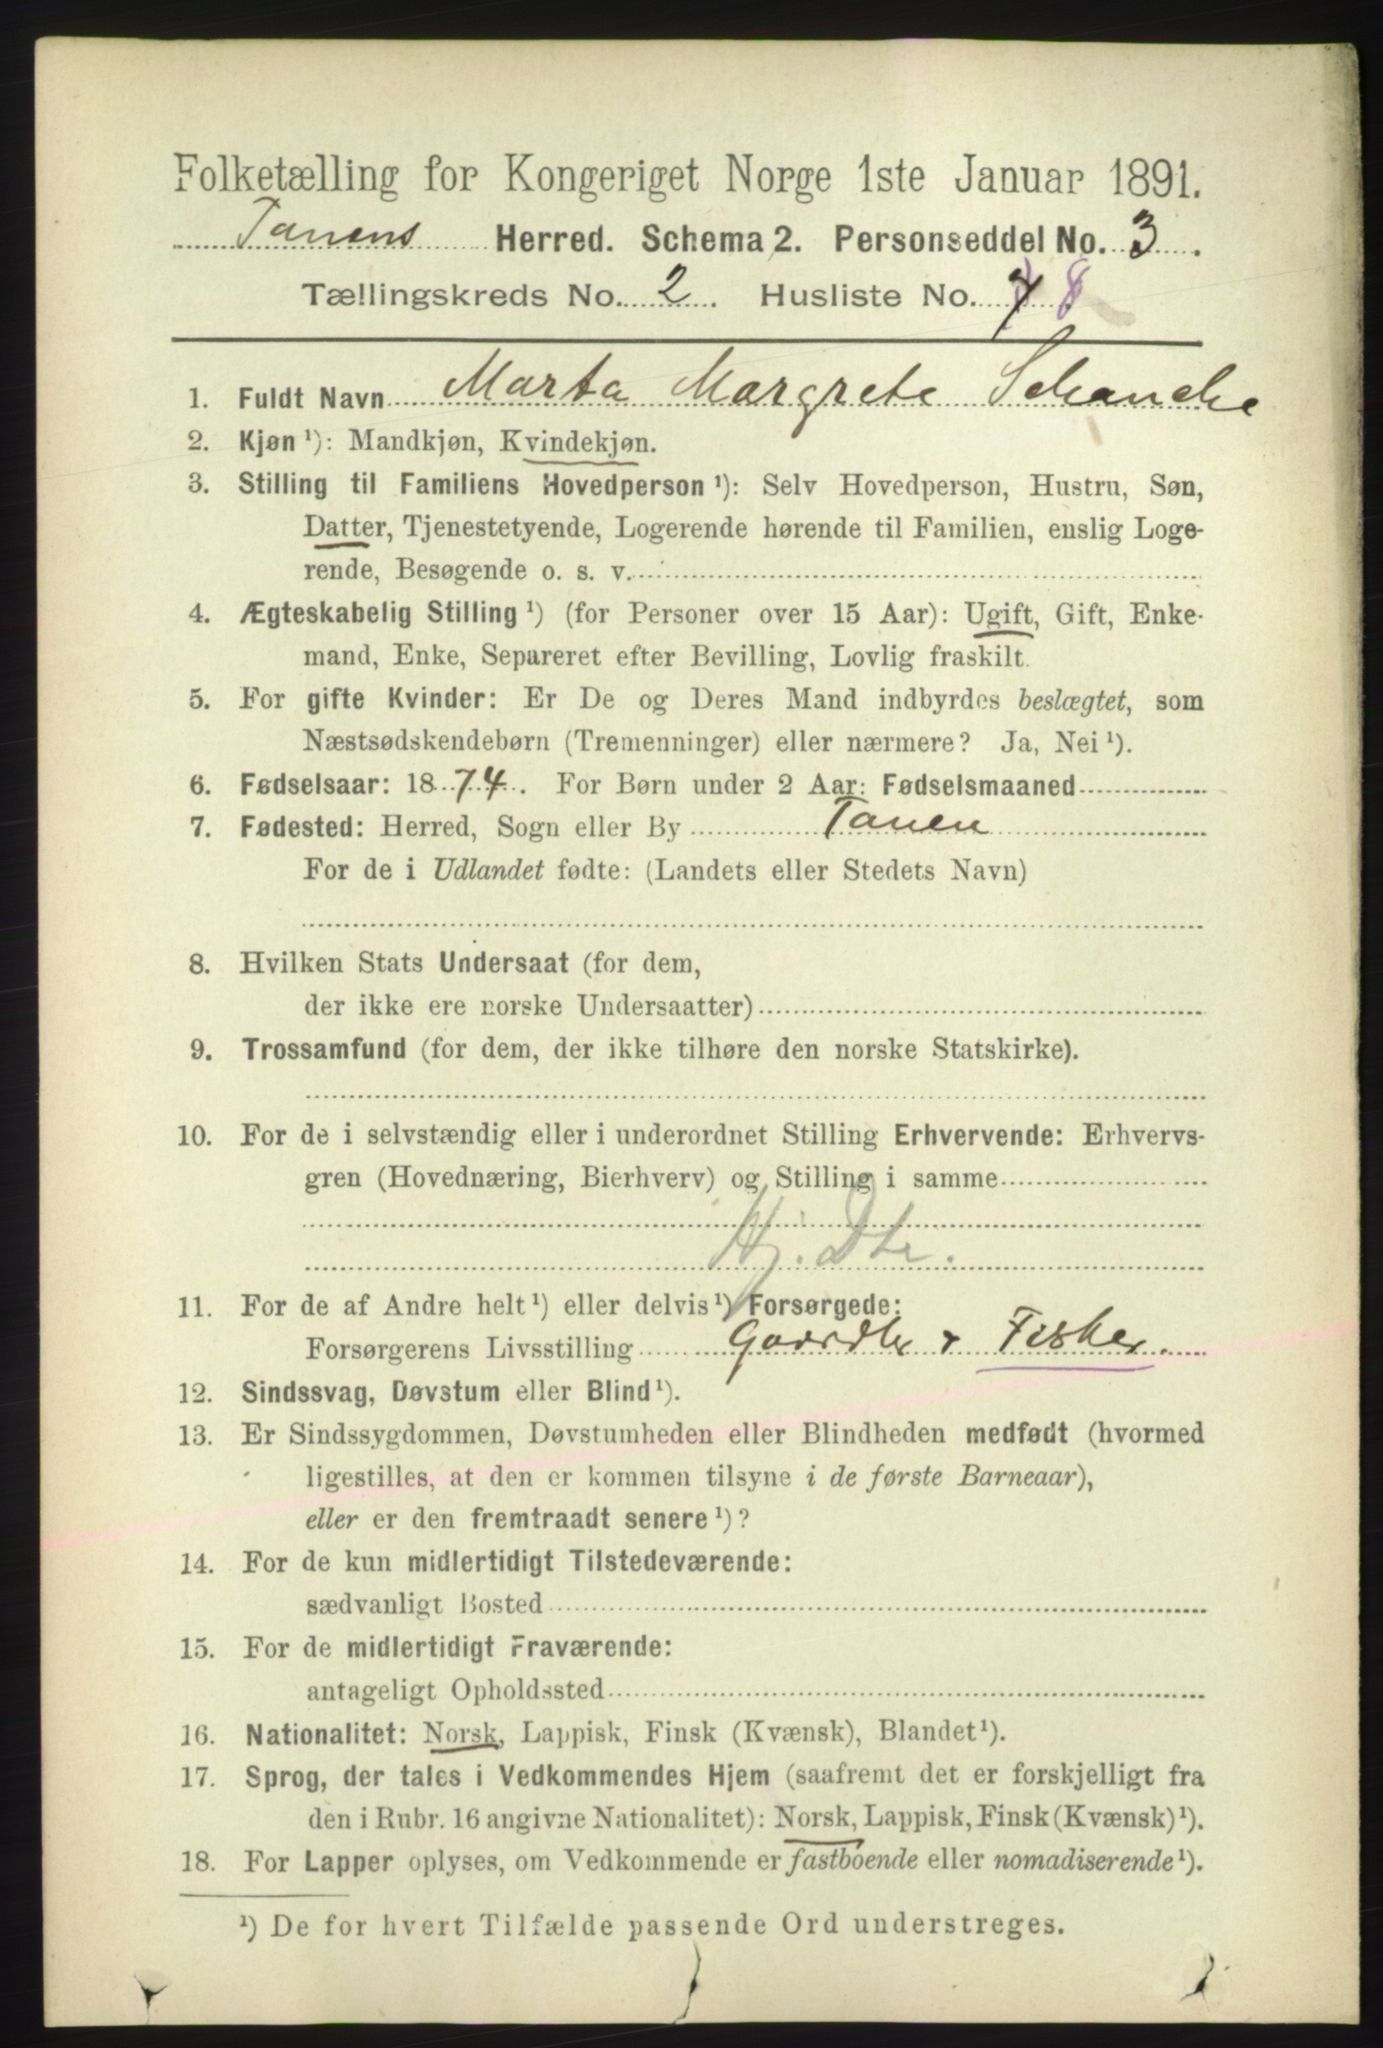 Folketælling for Kongeriget Norge 1ste Januar 1891.
Tanens Herred. Schema 2. Personseddel No. 3.
Tællingskreds No. 2. Husliste No. 8
1. Fuldt Navn Marta Margrete Schanche
2. Kjøn ¹): Mandkjøn, Kvindekjøn.
3. Stilling til Familiens Hovedperson ¹): Selv Hovedperson, Hustru, Søn,
Datter, Tjenestetyende, Logerende hørende til Familien, enslig Loge-
rende, Besøgende o. s. v.
4. Ægteskabelig Stilling ¹) (for Personer over 15 Aar): Ugift, Gift, Enke-
mand, Enke, Separeret efter Bevilling, Lovlig fraskilt.
5. For gifte Kvinder: Er De og Deres Mand indbyrdes beslægtet, som
Næstsødskendebørn (Tremenninger) eller nærmere? Ja, Nei ¹).
6. Fødselsaar: 1874. For Børn under 2 Aar: Fødselsmaaned
7. Fødested: Herred, Sogn eller By Tanen
For de i Udlandet fødte: (Landets eller Stedets Navn)
8. Hvilken Stats Undersaat (for dem,
der ikke ere norske Undersaatter)
9. Trossamfund (for dem, der ikke tilhøre den norske Statskirke).
10. For de i selvstændig eller i underordnet Stilling Erhvervende: Erhvervs-
gren (Hovednæring, Bierhverv) og Stilling i samme
Hj. Dtr.
11. For de af Andre helt ¹) eller delvis ¹) Forsørgede:
Forsørgerens Livsstilling Gaardbr + Fisker.
12. Sindssvag, Døvstum eller Blind ¹).
13. Er Sindssygdommen, Døvstumheden eller Blindheden medfødt (hvormed
ligestilles, at den er kommen tilsyne i de første Barneaar),
eller er den fremtraadt senere ¹)?
14. For de kun midlertidigt Tilstedeværende:
sædvanligt Bosted
15. For de midlertidigt Fraværende:
antageligt Opholdssted
16. Nationalitet: Norsk, Lappisk, Finsk (Kvænsk), Blandet ¹).
17. Sprog, der tales i Vedkommendes Hjem (saafremt det er forskjelligt fra
den i Rubr. 16 angivne Nationalitet): Norsk, Lappisk, Finsk (Kvænsk) ¹).
18. For Lapper oplyses, om Vedkommende er fastboende eller nomadiserende ¹).
¹) De for hvert Tilfælde passende Ord understreges.